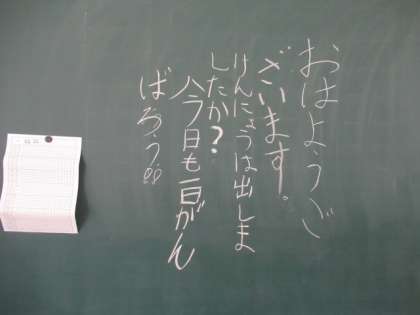 おはようご
ざいます。
けんにょうは出しま
したか?
今日も一日がん
ばろう!!